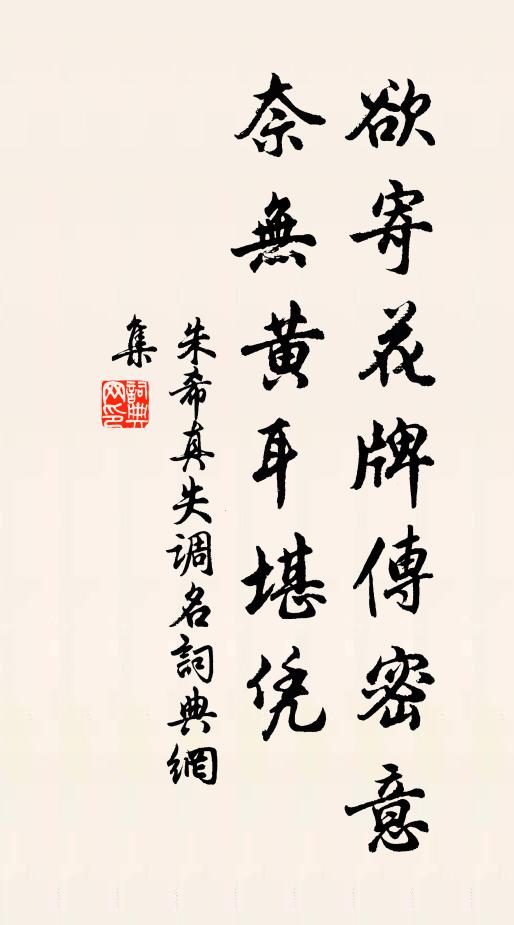 欲寄花牌傳密意
奈無黄耳堪凭
朱希真失调名詞典網
集
詞典
网印